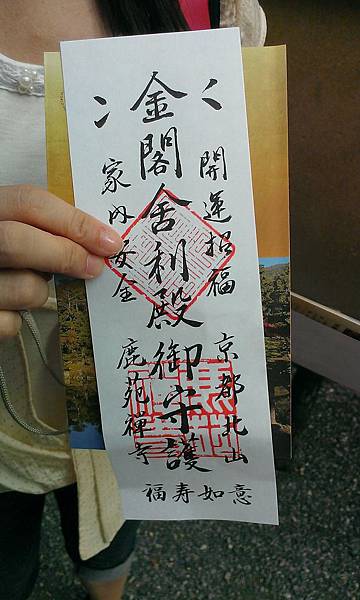 開運招福　京都北山
金閣舎利殿御守護
家内安全　鹿苑禅寺
福寿如意